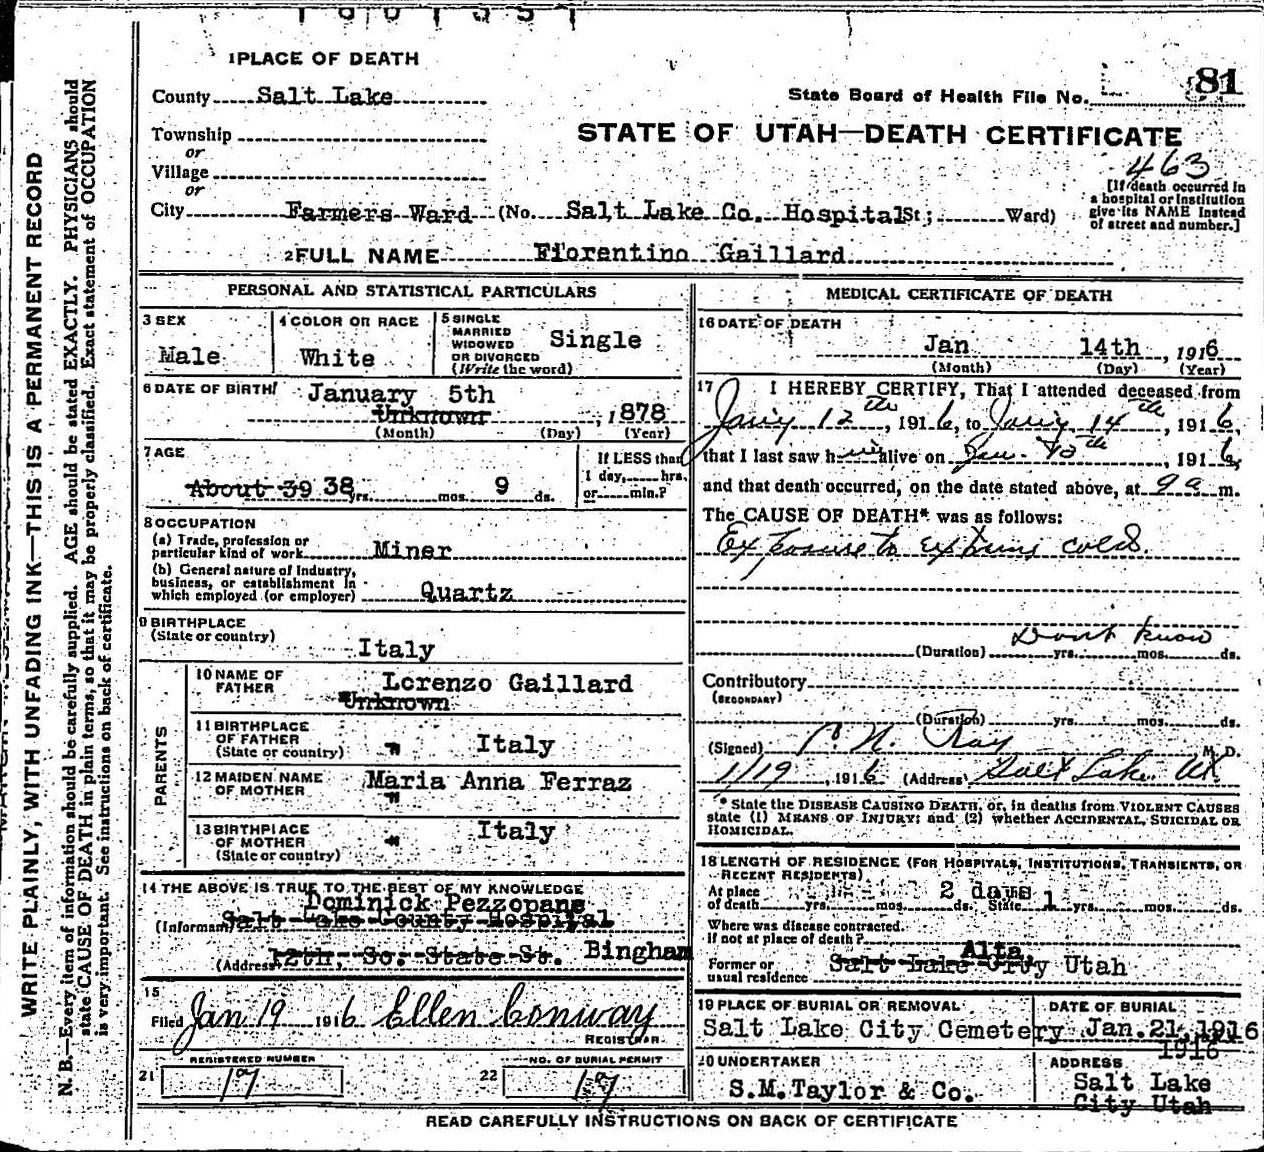 1 PLACE OF DEATH
County Salt Lake
Township
or
Village
or
City Farmers Ward (No. Salt Lake Co. Hospital St; Ward)
81
State Board of Health File No.
STATE OF UTAH—DEATH CERTIFICATE
463
[If death occurred in
a hospital or institution
give its NAME instead
of street and number.]
2 FULL NAME Fiorentino Gaillard
PERSONAL AND STATISTICAL PARTICULARS
3 SEX
Male
4 COLOR OR RACE
White
5 SINGLE
MARRIED
WIDOWED
OR DIVORCED
(Write the word)
Single
6 DATE OF BIRTH
January 5th
Unknown , 1878
(Month) (Day) (Year)
7 AGE
About 39 38 yrs. mos. 9 ds.
If LESS than
1 day, hrs.
or min.?
8 OCCUPATION
(a) Trade, profession or
particular kind of work Miner
(b) General nature of Industry,
business, or establishment in
which employed (or employer) Quartz
9 BIRTHPLACE
(State or country)
Italy
PARENTS
10 NAME OF
FATHER
Lorenzo Gaillard
Unknown
11 BIRTHPLACE
OF FATHER
(State or country) " Italy
12 MAIDEN NAME
OF MOTHER
Maria Anna Ferraz
"
13 BIRTHPLACE
OF MOTHER
(State or country) " Italy
14 THE ABOVE IS TRUE TO THE BEST OF MY KNOWLEDGE
Dominick Pezzopane
(Informant) Salt Lake County Hospital
(Address 12th, So. State St. Bingham
15
Filed Jan 19 1916 Ellen Conway
REGISTRAR
REGISTERED NUMBER
21 17
NO. OF BURIAL PERMIT
22 17
MEDICAL CERTIFICATE OF DEATH
16 DATE OF DEATH
Jan 14th , 1916
(Month) (Day) (Year)
17 I HEREBY CERTIFY, That I attended deceased from
12th , 1916, to 14th , 1916,
that I last saw h alive on Jan. 13th , 1916,
and that death occurred, on the date stated above, at 9 a m.
The CAUSE OF DEATH* was as follows:
Exposure to extreme cold.
Dont know
(Duration) yrs. mos. ds.
Contributory
(SECONDARY)
(Duration) yrs. mos. ds.
(Signed) Ray M. D.
1/19 , 1916 (Address) Salt Lake Ut
* State the DISEASE CAUSING DEATH, or, in deaths from VIOLENT CAUSES
state (1) MEANS OF INJURY; and (2) whether ACCIDENTAL, SUICIDAL OR
HOMICIDAL.
18 LENGTH OF RESIDENCE (FOR HOSPITALS, INSTITUTIONS, TRANSIENTS, OR
RECENT RESIDENTS)
At place
of death yrs. mos. 2 days ds. State 1 yrs. mos. ds.
Where was disease contracted
if not at place of death?
Alta,
Former or
usual residence Salt Lake City Utah
19 PLACE OF BURIAL OR REMOVAL
Salt Lake City Cemetery
DATE OF BURIAL
Jan. 21, 1916
1916
20 UNDERTAKER
S.M.Taylor & Co.
ADDRESS
Salt Lake
City Utah
READ CAREFULLY INSTRUCTIONS ON BACK OF CERTIFICATE
WRITE PLAINLY, WITH UNFADING INK—THIS IS A PERMANENT RECORD
N. B.—Every item of information should be carefully supplied. AGE should be stated EXACTLY. PHYSICIANS should
state CAUSE OF DEATH in plain terms, so that it may be properly classified. Exact statement of OCCUPATION
is very important. See instructions on back of certificate.